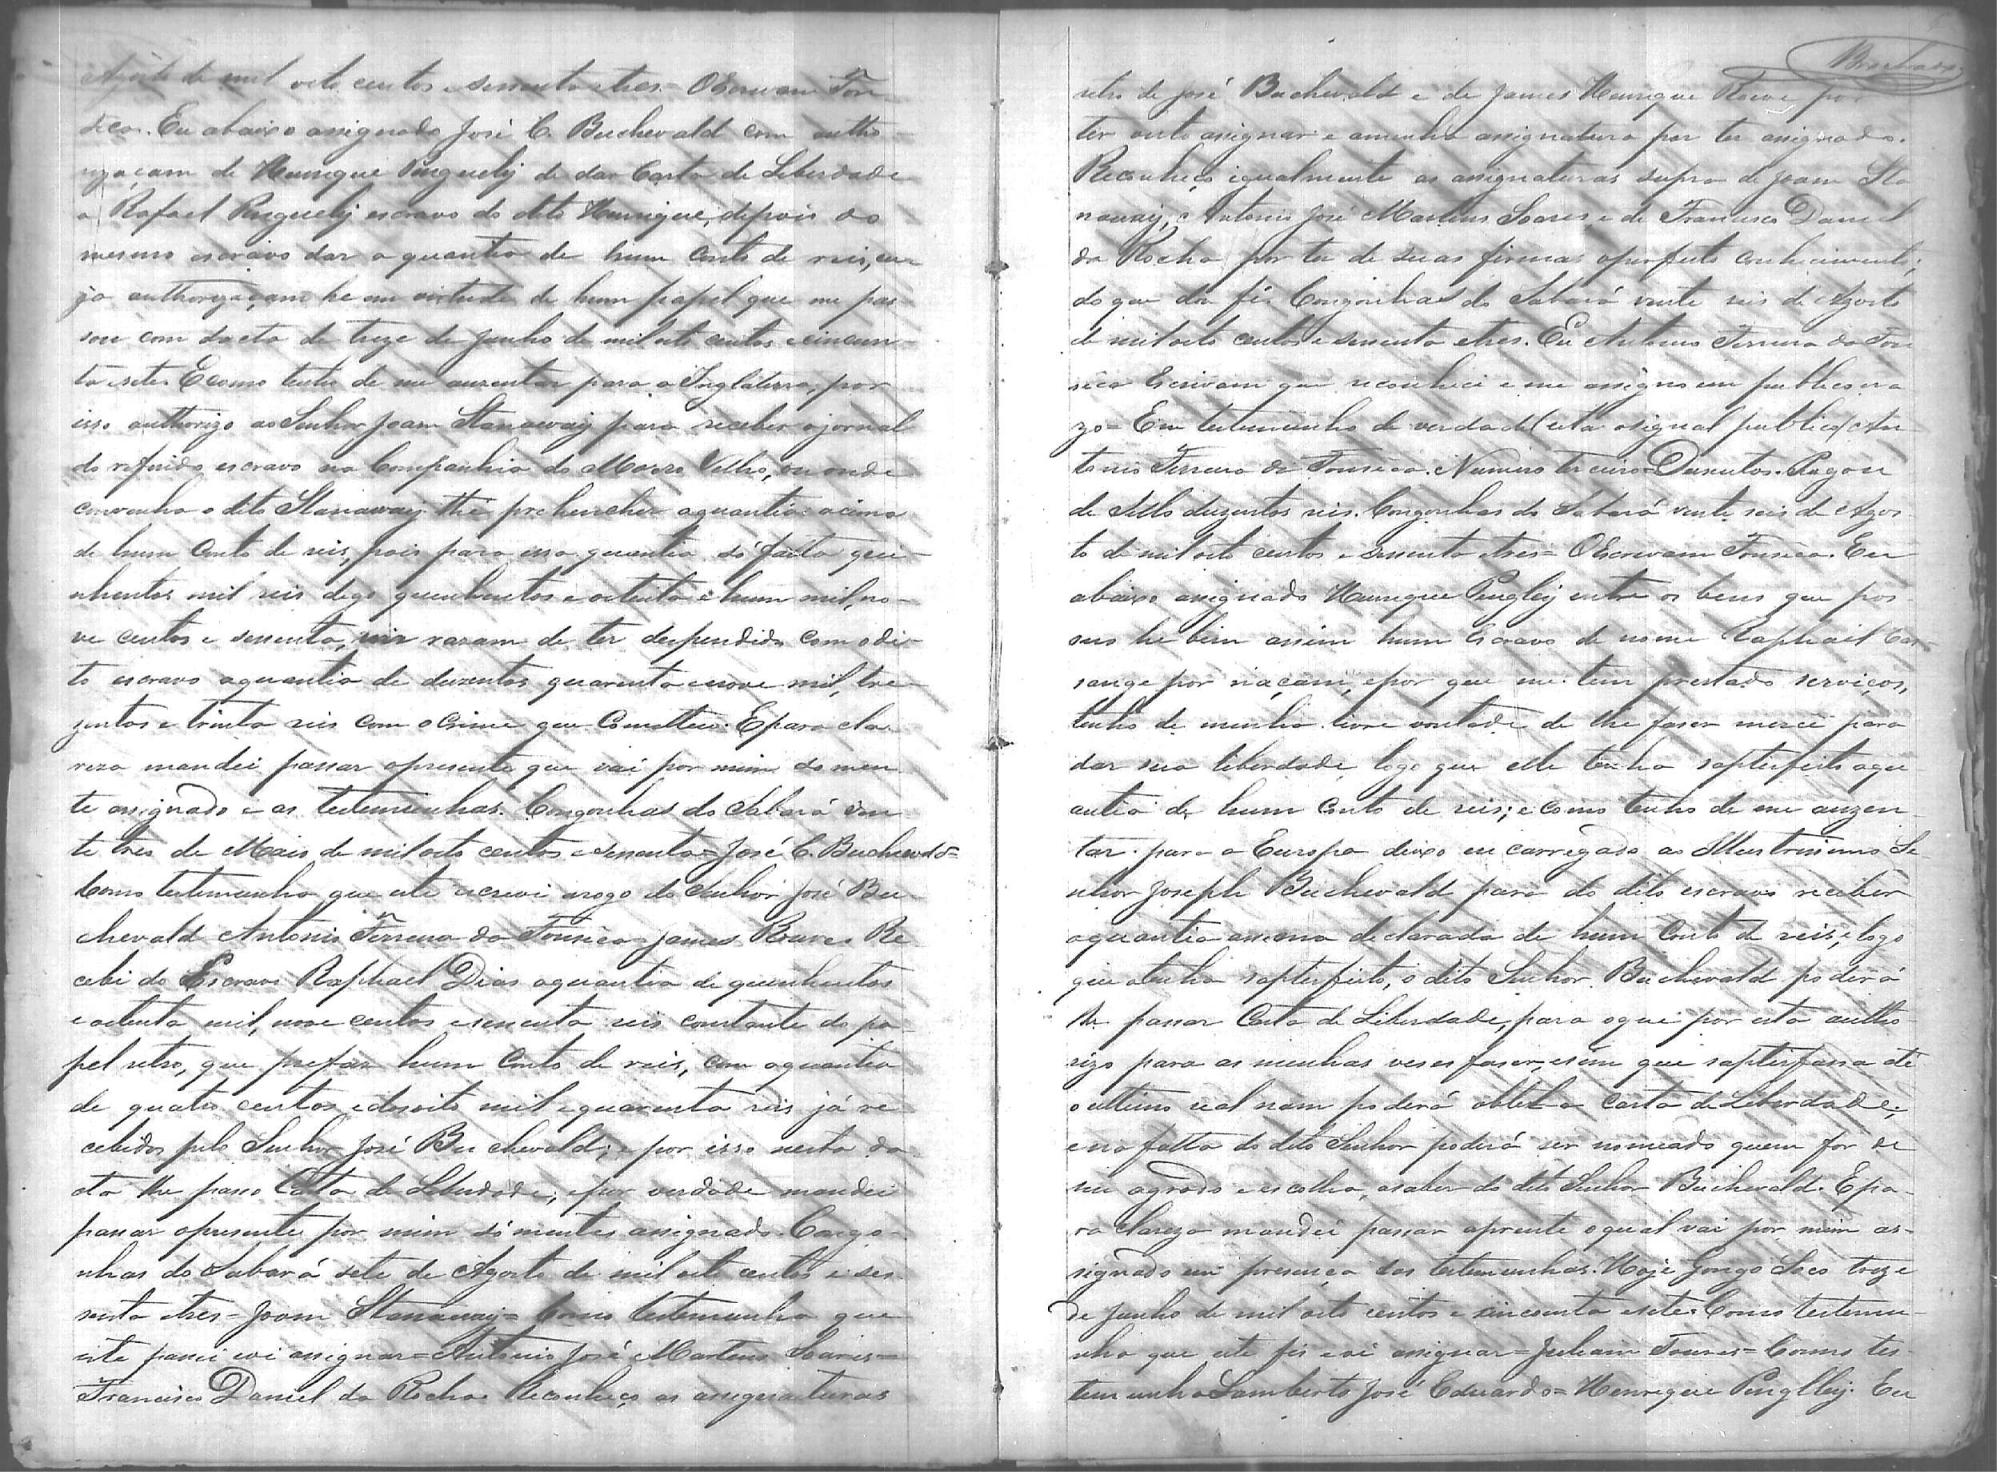 Agosto de mil oito centos e sessenta e tres = O Escrivam Fon
seca. Eu abaixo assignado José C. Buchewald com autho
rizaçam de Henrique Pinguelly de dar Carta de Liberdade
a Rafael Pinguelly escravo do dito Henrique, depois do
mesmo escravo dar a quantia de hum conto de reis, cu
ja authorizaçam he em virtude de hum papel que me pas
sou com dacta de treze de Junho de mil oito centos e cincoen
ta e sete. E como tenho de me auzentar para a Inglaterra, por
isso authorizo ao Senhor Joam Stanaway para receber o jornal
do referido escravo na Companhia do Morro Velho, ou onde
convenha o dito Stanaway the prehencher a quantia acima
de hum Conto de reis, pois para essa quantia só falta que
nhentos mil reis digo quenhentos e oitenta e hum mil, no
ve centos e sessenta, reis razam de ter despendido com o di
to escravo a quantia de duzentos quarenta e nove mil, tre
zentos e trinta reis com o crime que cometteu. E para cla
reza mandei passar o presente que vai por mim somen
te assignado e as testemunhas. Congonhas do Sabará vin
te tres de Maio de mil oito centos e sessenta = José C. Buchewald =
Como testemunha que este escrevi a rogo do Senhor José Bu
chewald Antonio Ferreira da Fonseca = James Rowe. Re
cebi do Escravo Raphael Dias a quantia de quenhentos
e oitenta mil, nove centos e sessenta reis constante do pa
pel retro, que prefas hum Conto de reis, com a quantia
de quatro centos e desoito mil e quarenta reis já re
cebidos pelo Senhor José Buchewald; e por isso nesta da
ta lhe passo Carta de Liberdade, e por verdade mandei
passar o presente por mim sómente assignado. Congo
nhas do Sabará sete de Agosto de mil oito centos e ses
senta e tres = Joam Stanaway = Como testemunha que
este passei e vi assignar = Antonio José Martins Soares =
Francisco Daniel da Rocha. Reconheço as assignaturas
retro de José Buchewald e de James Henrique Rowe por
ter visto assignar e a minha assignatura por ter assignado.
Reconheço igualmente as assignaturas supra de Joam Sta
naway, Antonio José Martins Soares e de Francisco Daniel
da Rocha por ter de suas firmas o perfeito conhecimento;
do que dou fé. Congonhas do Sabará vinte seis de Agosto
de mil oito centos e sessenta e tres. Eu Antonio Ferreira da Fon
seca Escrivam que reconheci e me assigno em publico e ra
zo = Em testemunho de verdade (está o signal publico) An
tonio Ferreira da Fonseca. Numero terceiro = Duzentos. Pagou
de Sello duzentos reis. Congonhas do Sabará vinte seis de Agos
to de mil oito centos e sessenta e tres = O Escrivam Fonseca. Eu
abaixo assignado Henrique Pinglly entre os bens que pos
suo he bem assim hum Escravo de nome Raphael Cas
sange por naçam, e por que me tem prestado serviços,
tenho de minha livre vontade de lhe faser mercê para
dar sua liberdade logo que elle tenha sapterfeito a qu
antia de hum conto de reis; e como tenho de me auzen
tar para a Europa deixo encarregado ao Illustrissimo Se
nhor Joseph Buchewald para do dito escravo receber
a quantia assima declarada de hum Conto de reis, e logo
que a tenha sapterfeito, o dito Senhor Buchewald poderá
lhe passar Carta de Liberdade, para o que por esta autho
rizo para as minhas veses faser, e sem que sapterfassa até
o ultimo real nam poderá obter a carta de Liberdade;
e na falta do dito Senhor poderá ser nomeado quem for de
seu agrado e escolha, a saber do dito Senhor Buchewald. E pa
ra clareza mandei passar o prezente o qual vai por mim as
signado em presença das testemunhas. Hoje Gongo Soco treze
de Junho de mil oito centos e cincoenta e sete. Como testemu
nha que este fis e vi assignar = Juliam = Como tes
temunha Lamberto José Eduardo = Henrique Pinglley. Eu